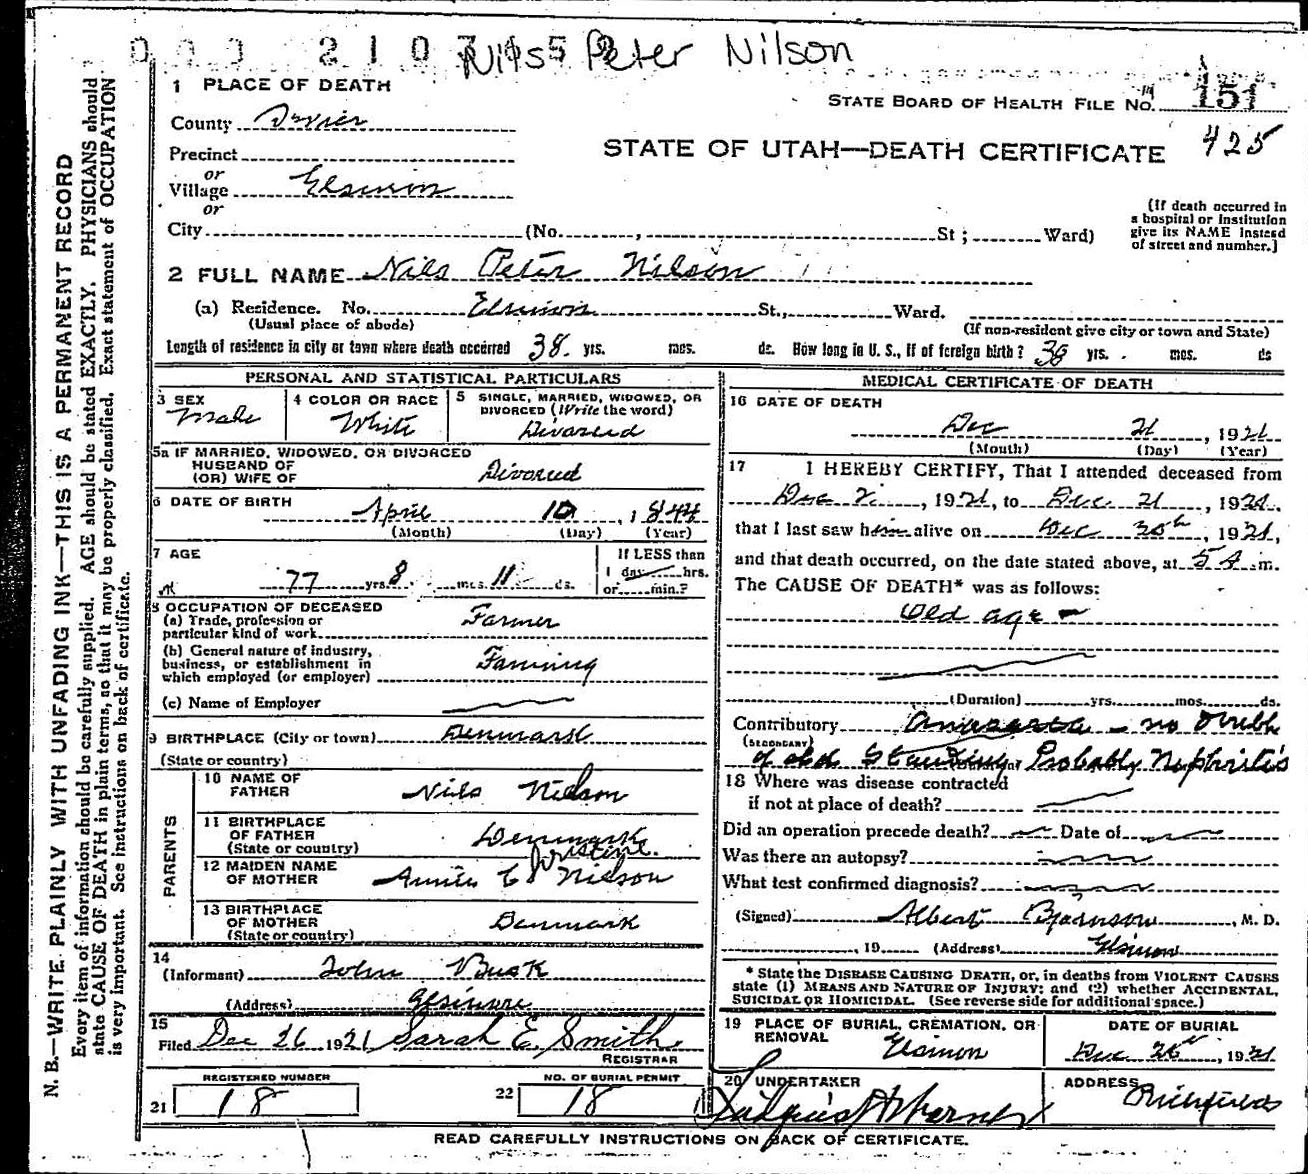 Nils Peter Nilson
1 PLACE OF DEATH
STATE BOARD OF HEALTH FILE No. 151
County
425
STATE OF UTAH—DEATH CERTIFICATE
Precinct
or
Village Elsinore
or
City (No. , St ; Ward)
(If death occurred in a hospital or institution give its NAME instead of street and number.]
2 FULL NAME Nils Peter Nilson
(a) Residence. No. Elsinore St., Ward.
(Usual place of abode)
(If non-resident give city or town and State)
Length of residence in city or town where death occurred 38 yrs. mos. ds. How long in U. S., if of foreign birth? 38 yrs. mos. ds
PERSONAL AND STATISTICAL PARTICULARS
3 SEX Male
4 COLOR OR RACE White
5 SINGLE, MARRIED, WIDOWED, OR DIVORCED (Write the word)
Divorced
5a IF MARRIED, WIDOWED, OR DIVORCED
HUSBAND OF
(OR) WIFE OF Divorced
6 DATE OF BIRTH
April 10, 1844
(Month) (Day) (Year)
7 AGE
77 yrs 8 mos 11 ds.
If LESS than
1 day hrs.
or min.?
8 OCCUPATION OF DECEASED
(a) Trade, profession or
particular kind of work Farmer
(b) General nature of industry,
business, or establishment in
which employed (or employer) Farming
(c) Name of Employer
9 BIRTHPLACE (City or town) Denmark
(State or country)
PARENTS
10 NAME OF
FATHER Nils Nielson
11 BIRTHPLACE
OF FATHER
(State or country) Denmark
12 MAIDEN NAME
OF MOTHER Annie C Nielson
13 BIRTHPLACE
OF MOTHER
(State or country) Denmark
14
(Informant) John Busk
(Address) Elsinore
15
Filed Dec 26 1921 Sarah E. Smith
REGISTRAR
REGISTERED NUMBER
21 18
NO. OF BURIAL PERMIT
22 18
MEDICAL CERTIFICATE OF DEATH
16 DATE OF DEATH
Dec 21, 1921
(Month) (Day) (Year)
17 I HEREBY CERTIFY, That I attended deceased from
Dec 2, 1921, to Dec 21, 1921,
that I last saw him alive on Dec 20th, 1921,
and that death occurred, on the date stated above, at 5 A. m.
The CAUSE OF DEATH* was as follows:
Old age
(Duration) yrs. mos. ds.
Contributory Anasarca - no doubt
(SECONDARY)
of old standing Probably Nephritis
18 Where was disease contracted
if not at place of death?
Did an operation precede death? Date of
Was there an autopsy?
What test confirmed diagnosis?
(Signed) Albert , M. D.
, 19 (Address) Elsinore
* State the DISEASE CAUSING DEATH, or, in deaths from VIOLENT CAUSES
state (1) MEANS AND NATURE OF INJURY; and (2) whether ACCIDENTAL,
SUICIDAL OR HOMICIDAL. (See reverse side for additional space.)
19 PLACE OF BURIAL, CREMATION, OR
REMOVAL Elsinore
DATE OF BURIAL
Dec 26, 1921
20 UNDERTAKER
ADDRESS Richfield
READ CAREFULLY INSTRUCTIONS ON BACK OF CERTIFICATE.
N. B.—WRITE PLAINLY WITH UNFADING INK—THIS IS A PERMANENT RECORD
Every item of information should be carefully supplied. AGE should be stated EXACTLY. PHYSICIANS should
state CAUSE OF DEATH in plain terms, so that it may be properly classified. Exact statement of OCCUPATION
is very important. See instructions on back of certificate.